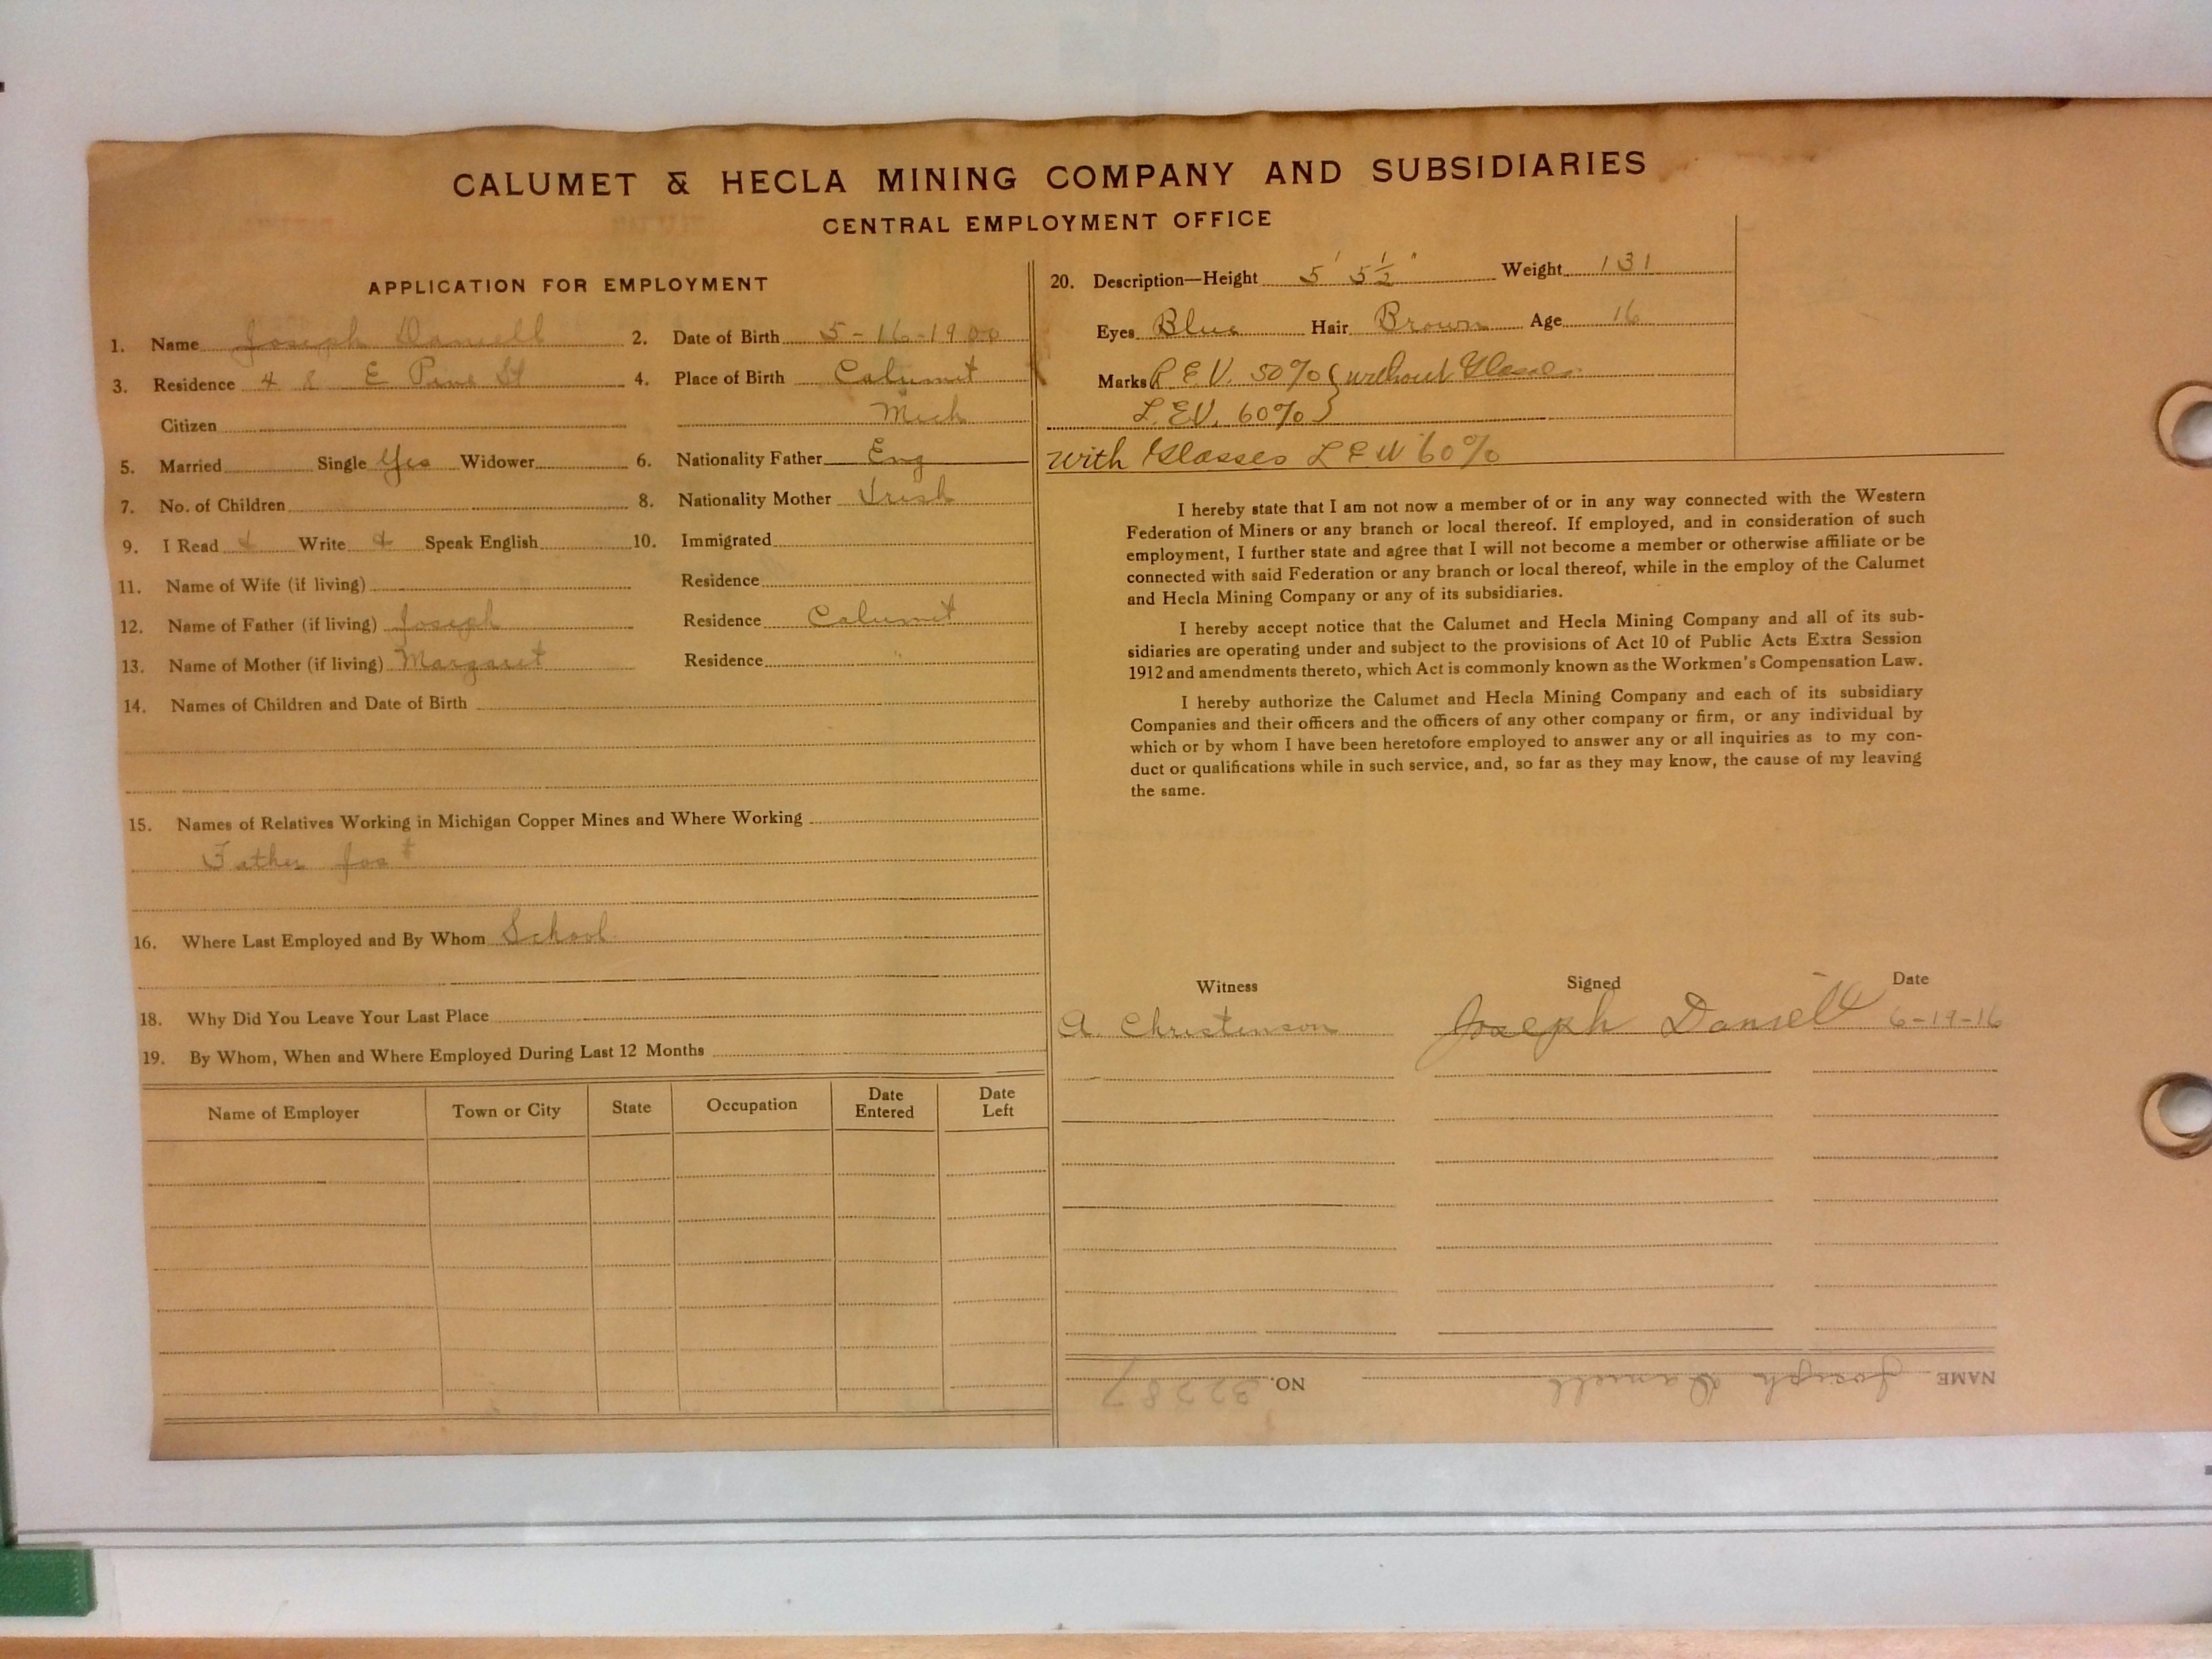 CALUMET & HECLA MINING COMPANY AND SUBSIDIARIES
CENTRAL EMPLOYMENT OFFICE
APPLICATION FOR EMPLOYMENT
1. Name Joseph Daniell 2. Date of Birth 5-16-1900
3. Residence E Pine St 4. Place of Birth Calumet
Citizen Mich
5. Married Single Yes Widower 6. Nationality Father Eng
7. No. of Children 8. Nationality Mother Irish
9. I Read Write Speak English 10. Immigrated
11. Name of Wife (if living) Residence
12. Name of Father (if living) Joseph Residence Calumet
13. Name of Mother (if living) Margaret Residence "
14. Names of Children and Date of Birth
15. Names of Relatives Working in Michigan Copper Mines and Where Working
Father Jos
16. Where Last Employed and By Whom School
18. Why Did You Leave Your Last Place
19. By Whom, When and Where Employed During Last 12 Months
Name of Employer Town or City State Occupation Date Entered Date Left
20. Description—Height 5' 5½" Weight 131
Eyes Blue Hair Brown Age 16
Marks R.E.V. 50% } without Glasses
L.E.V. 60% }
with Glasses L E V 60%
I hereby state that I am not now a member of or in any way connected with the Western
Federation of Miners or any branch or local thereof. If employed, and in consideration of such
employment, I further state and agree that I will not become a member or otherwise affiliate or be
connected with said Federation or any branch or local thereof, while in the employ of the Calumet
and Hecla Mining Company or any of its subsidiaries.
I hereby accept notice that the Calumet and Hecla Mining Company and all of its sub-
sidiaries are operating under and subject to the provisions of Act 10 of Public Acts Extra Session
1912 and amendments thereto, which Act is commonly known as the Workmen's Compensation Law.
I hereby authorize the Calumet and Hecla Mining Company and each of its subsidiary
Companies and their officers and the officers of any other company or firm, or any individual by
which or by whom I have been heretofore employed to answer any or all inquiries as to my con-
duct or qualifications while in such service, and, so far as they may know, the cause of my leaving
the same.
Witness Signed Date
A. Christenson Joseph Daniell 6-19-16
NAME Joseph Daniell NO. 32287